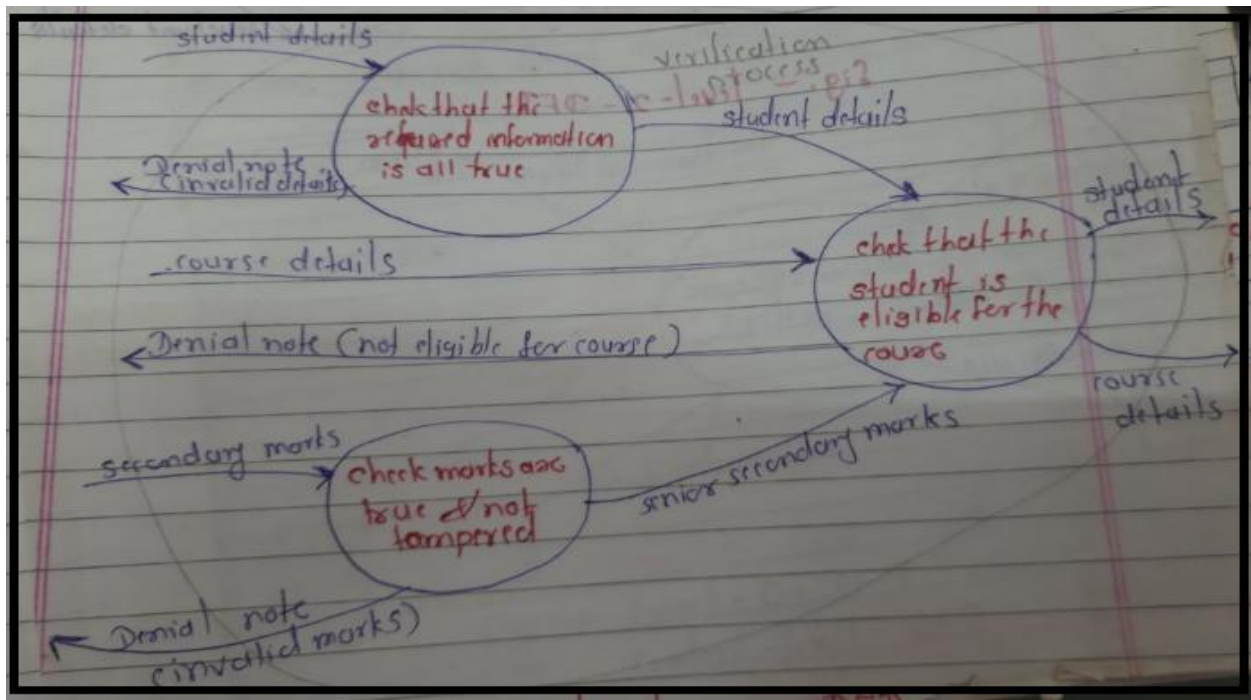 student details
verification
process
chek that the
requared information
is all true
student details
Denial note
(invalid details)
student
details
course details
chek that the
student is
eligible for the
course
Denial note (not eligible for course)
course
details
secondary marks
check marks are
true & not
tampered
senior secondary marks
Denial note
(invalid marks)